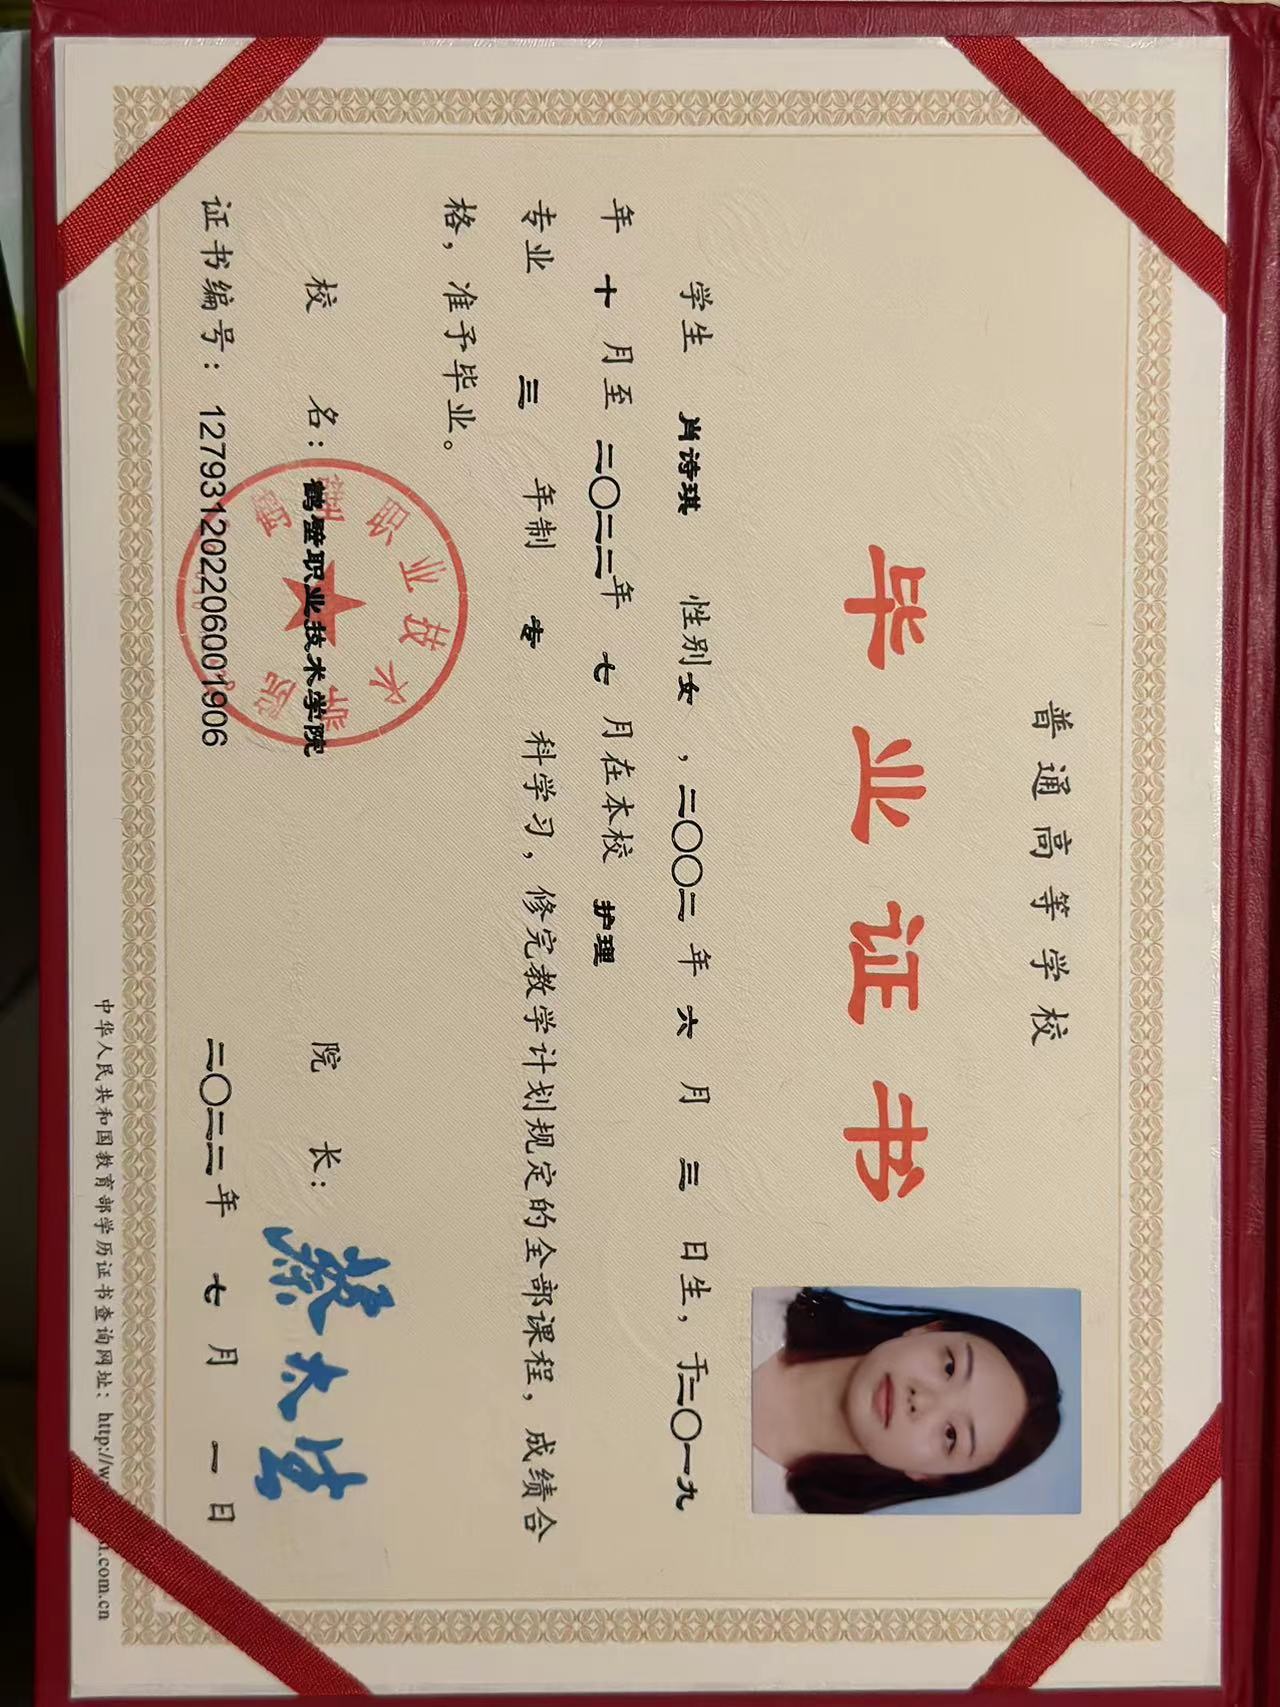 普通高等学校
毕业证书
学生 肖诗琪 性别女，二〇〇二年六月三日生，于二〇一九
年十月至二〇二二年七月在本校 护理
专业 三 年制 专 科学习，修完教学计划规定的全部课程，成绩合
格，准予毕业。
校 名：鹤壁职业技术学院 院 长：
证书编号：127931202206001906 二〇二二年七月一日
中华人民共和国教育部学历证书查询网址：http://w
.com.cn